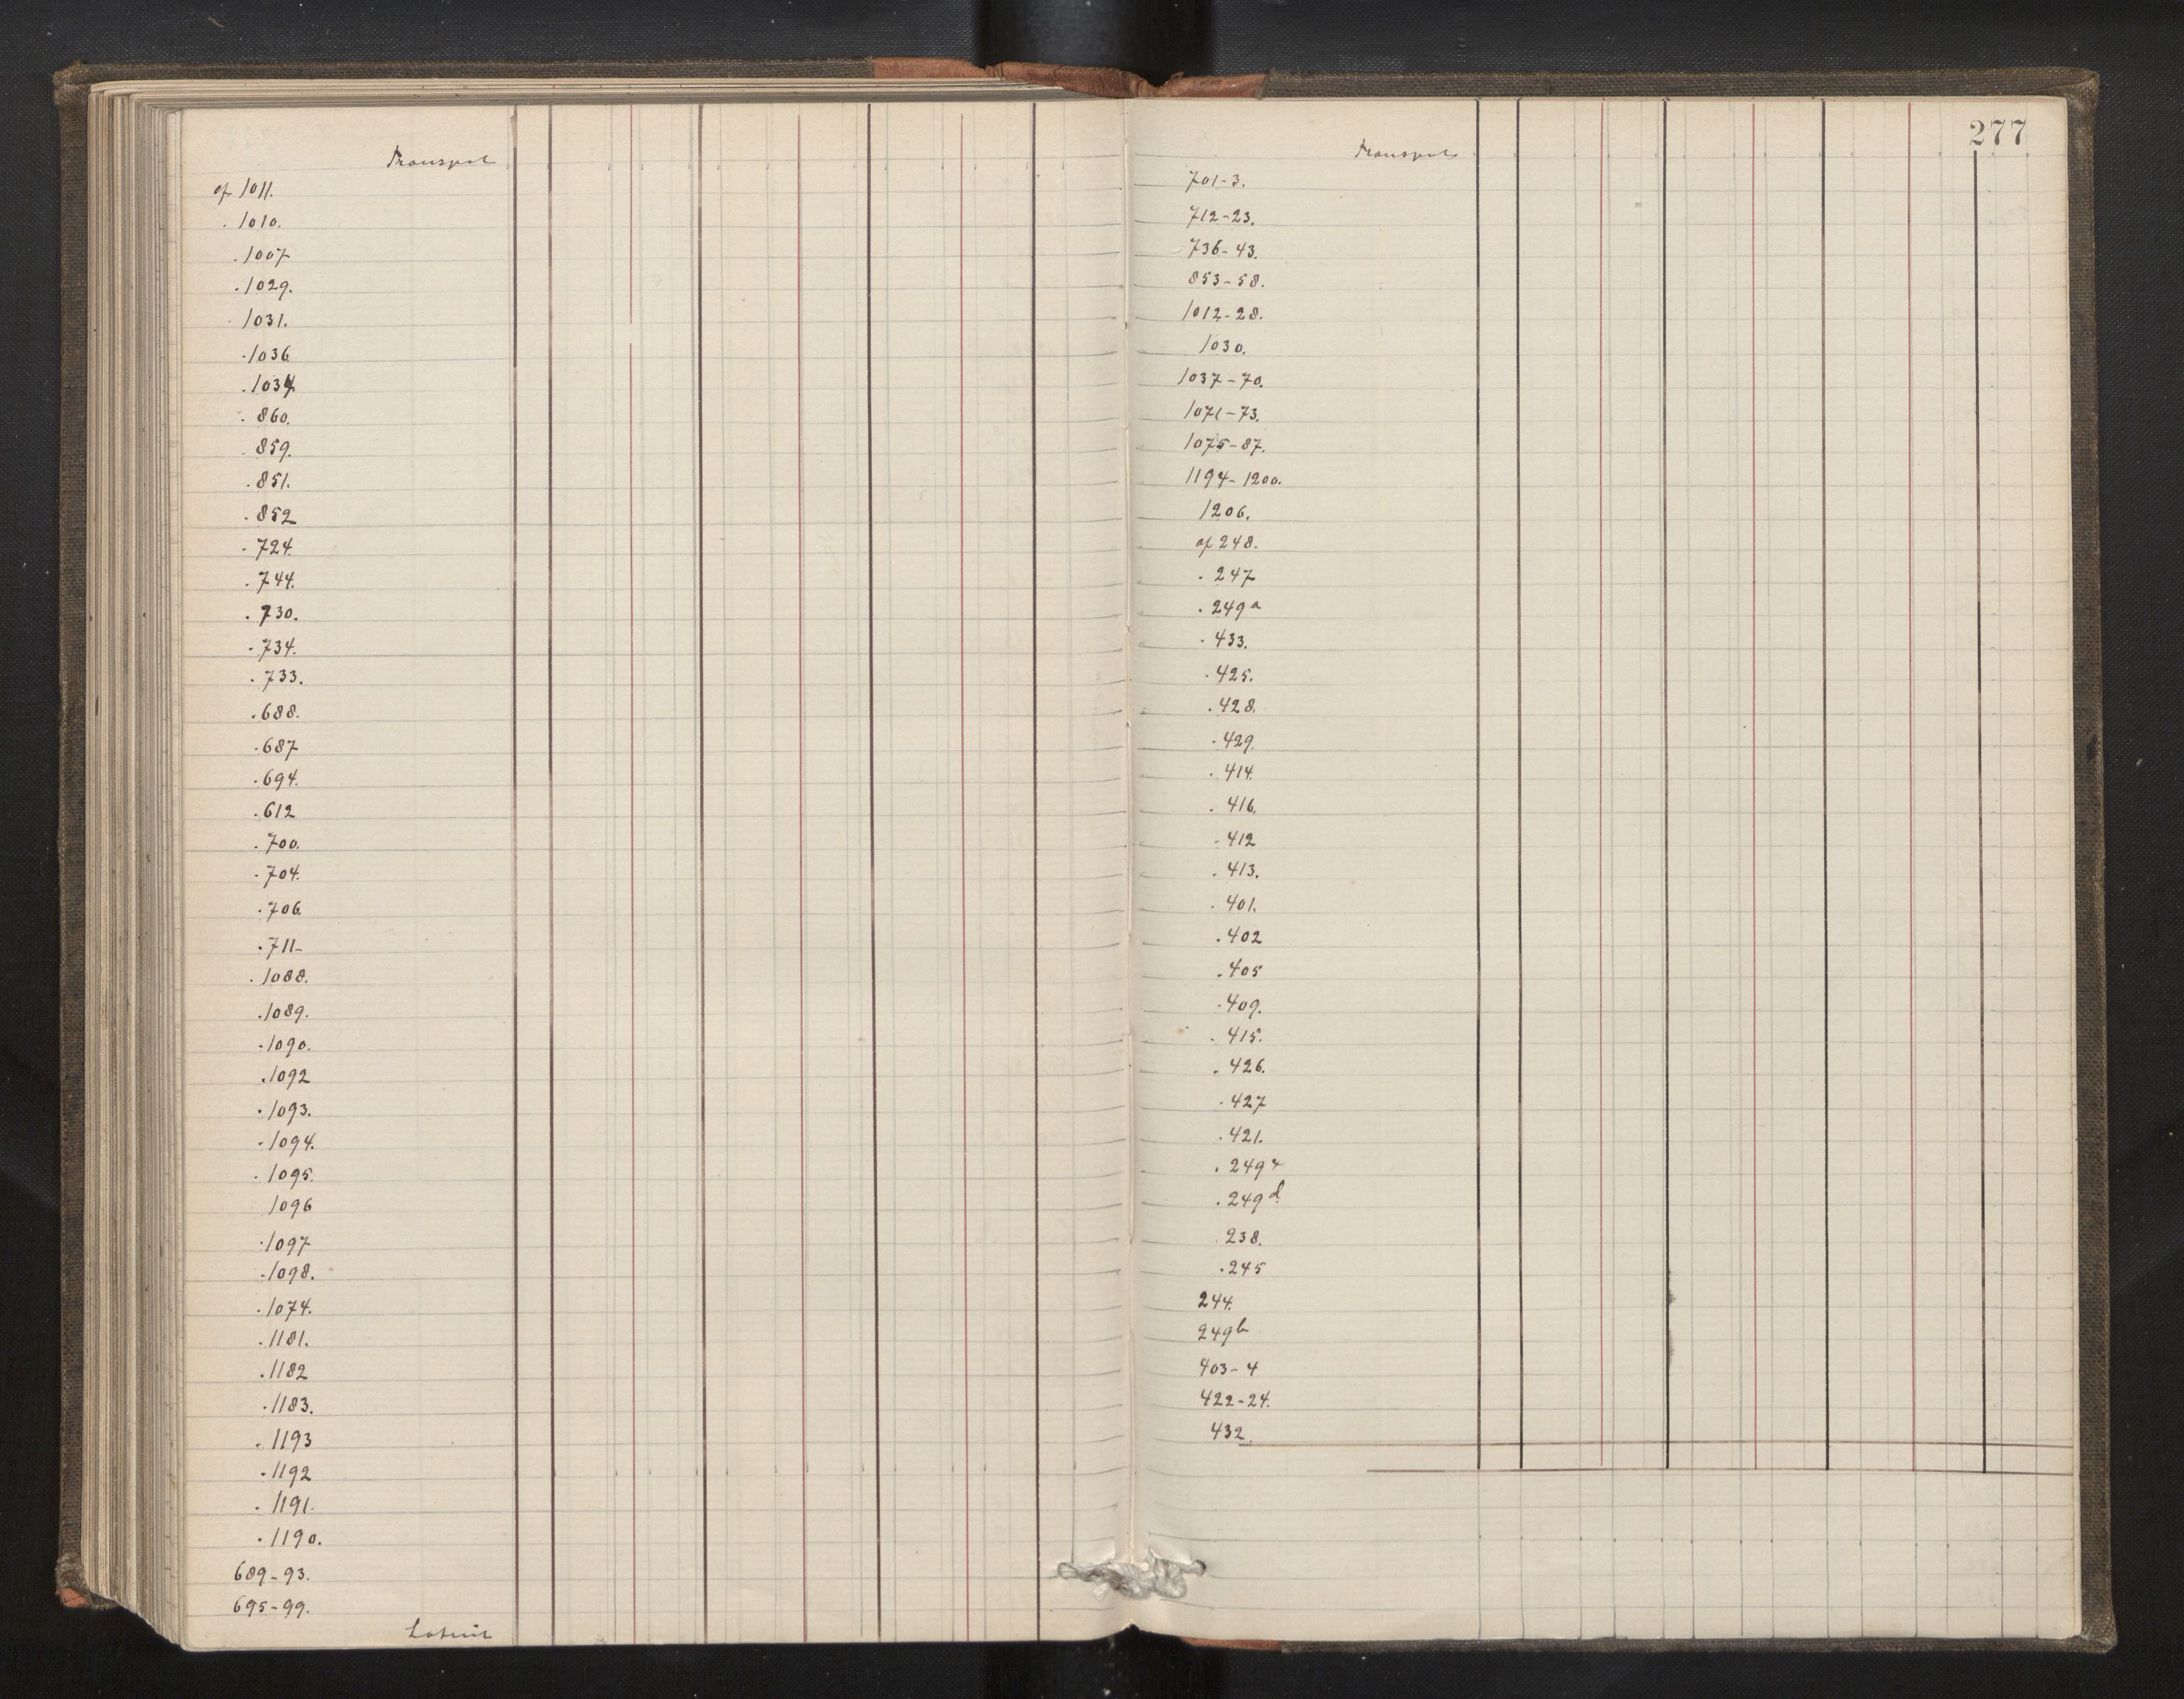 Transport
af 1011.
. 1010.
. 1007
. 1029.
. 1031.
. 1036
. 1034.
. 860.
. 859.
. 851.
. 852
. 724.
. 744.
. 730.
. 734.
. 733.
. 688.
. 687
. 694.
. 612
. 700.
. 704.
. 706.
. 711-
. 1088.
. 1089.
. 1090.
. 1092
. 1093.
. 1094.
. 1095.
1096
. 1097
. 1098.
. 1074.
. 1181.
. 1182
. 1183.
. 1193
. 1192
. 1191.
. 1190.
689-93.
695-99.
Lateris
277
Transport
701-3.
712-23.
736-43.
853-58.
1012-28.
1030.
1037-70.
1071-73.
1075-87.
1194-1200.
1206.
af 248.
. 247
. 249a
. 433.
. 425.
. 428.
. 429.
. 414.
. 416.
. 412
. 413.
. 401.
. 402
. 405
. 409.
. 415.
. 426.
. 427
. 421.
. 249
. 249d.
. 238.
. 245
244.
249b
403-4
422-24.
432.